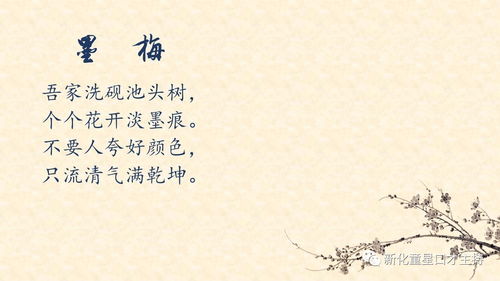 墨 梅
吾家洗砚池头树，
个个花开淡墨痕。
不要人夸好颜色，
只流清气满乾坤。
新化童星口才主持